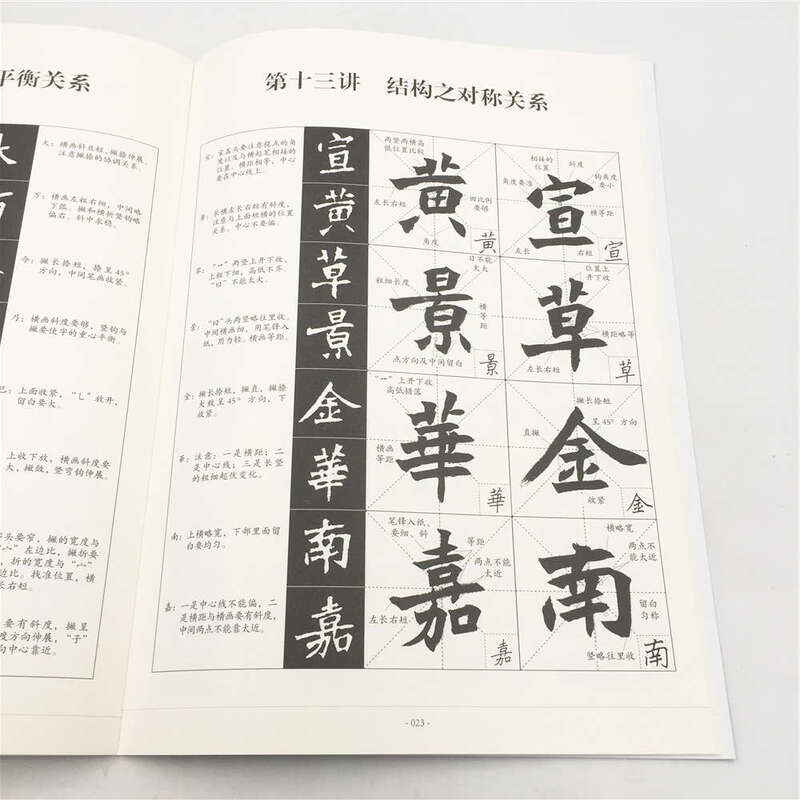 平衡关系
大：横画斜且短，撇捺伸展，
注意撇捺的协调关系。
万：横画左粗右细，中间略
下弧，撇和横折竖钩略
偏右。斜中求稳。
令：撇长捺短，捺呈45°
方向，中间笔画收紧。
乃：横画斜度要够，竖钩与
撇要使字的重心平衡
巴：上面收紧，“乚”放开，
留白要大。
上收下放，横画斜度要
大，撇敛，竖弯钩伸展。
头要窄，撇的宽度与
“宀”左边比，撇折要
，折的宽度与“宀”
边比。找准位置，横
长右短。
要有斜度，撇呈
度方向伸展，“子”
向中心靠近。
第十三讲 结构之对称关系
宣：宝盖头要注意提点的角
度以及与横起笔相接的
位置，横距相等，中心
要在中心线上。
黄：长横左长右短有斜度，
注意与上面短横的位置
关系。中心不要偏。
草：“艹”两竖上开下收，
上粗下细，高低不等
“日”不能太大。
景：“日”头两竖略往里收。
中间横画细，用笔锋入
纸，用力轻。横画等距。
金：撇长捺短，撇直，撇捺
大致呈45°方向，下
放紧。
華：注意：一是横距；二
是中心线；三是长竖
的粗细起伏变化。
南：上横略宽，下部里面留
白要均匀。
嘉：一是中心线不能偏，二
是横距与横画要有斜度，
中间两点不能靠太近。
宣
黄
草
景
金
華
南
嘉
两竖两横高
低位置比较
左长右短
因比例
要够
角度
黄
黄
相接的
位置
斜度
角度要准
钩角度
要小
横等距
左长
右短
宣
宣
日不能
太大
粗细长度
横等距
点方向及中间留白
景
景
位置上
开下收
横距略等
左长右短
草
草
“艹”上开下收
高低错落
横画
等距
華
華
撇长捺短
呈45°方向
直撇
收紧
金
金
笔锋入纸，
要细、斜
等距
两点不能
太近
左长右短
嘉
嘉
横略宽
两点不能
太近
留白
匀称
竖略往里收
南
南
- 023 -